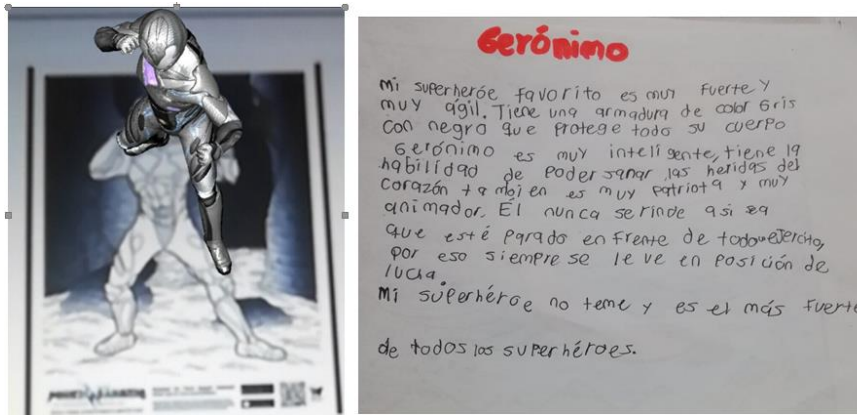 Gerónimo
Mi superheróe favorito es muy fuerte y
muy ágil. Tiene una armadura de color Gris
con negro que protege todo su cuerpo
Gerónimo es muy inteligente, tiene la
habilidad de poder sanar las heridas del
corazón tambien es muy patriota y muy
animador. Él nunca se rinde asi sea
que esté parado en frente de todo ejercito,
por eso siempre se le ve en posición de
lucha.
Mi superhéroe no teme y es el más fuerte
de todos los superhéroes.